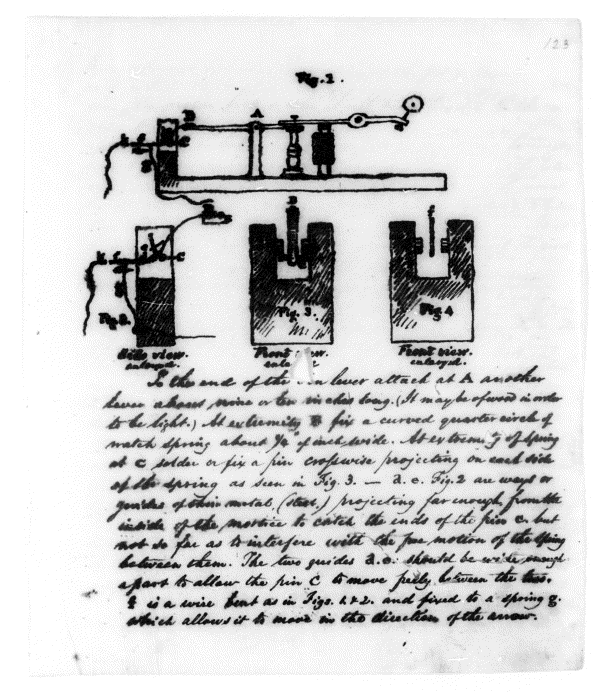 123
Fig. 1.
B
A
C
Fig. 2.
Fig. 3.
Fig. 4
Side view.
enlarged.
Front view.
Front view.
enlarged.
To the end of the pen lever attach at A another
lever about nine or ten inches long. (It may be of wood in order
to be light.) At extremity B fix a curved quarter circle of
watch spring about 1/4" of inch wide. At extremity of spring
at C solder or fix a pin crosswise projecting on each side
of the spring as seen in Fig. 3. — d. e. Fig. 2 are ways or
guides of thin metal (steel.) projecting far enough from the
inside of the mortice to catch the ends of the pin c. but
not so far as to interfere with the free motion of the spring
between them. The two guides d. e. should be wide enough
apart to allow the pin C to move freely between the two.
f is a wire bent as in Figs. 1. & 2. and fixed to a spring g.
which allows it to move in the direction of the arrow.